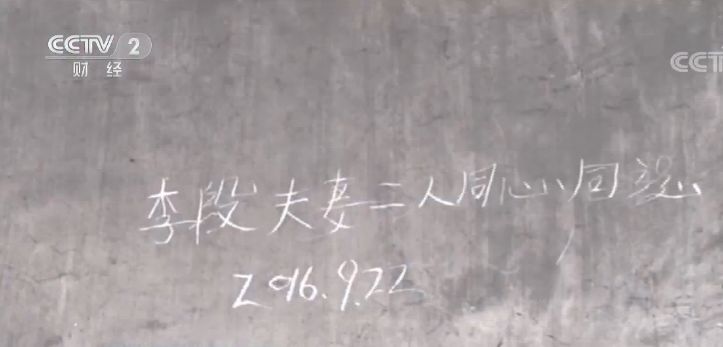 CCTV 2
财经
CCT
李段夫妻二人同心、同
2016.9.22